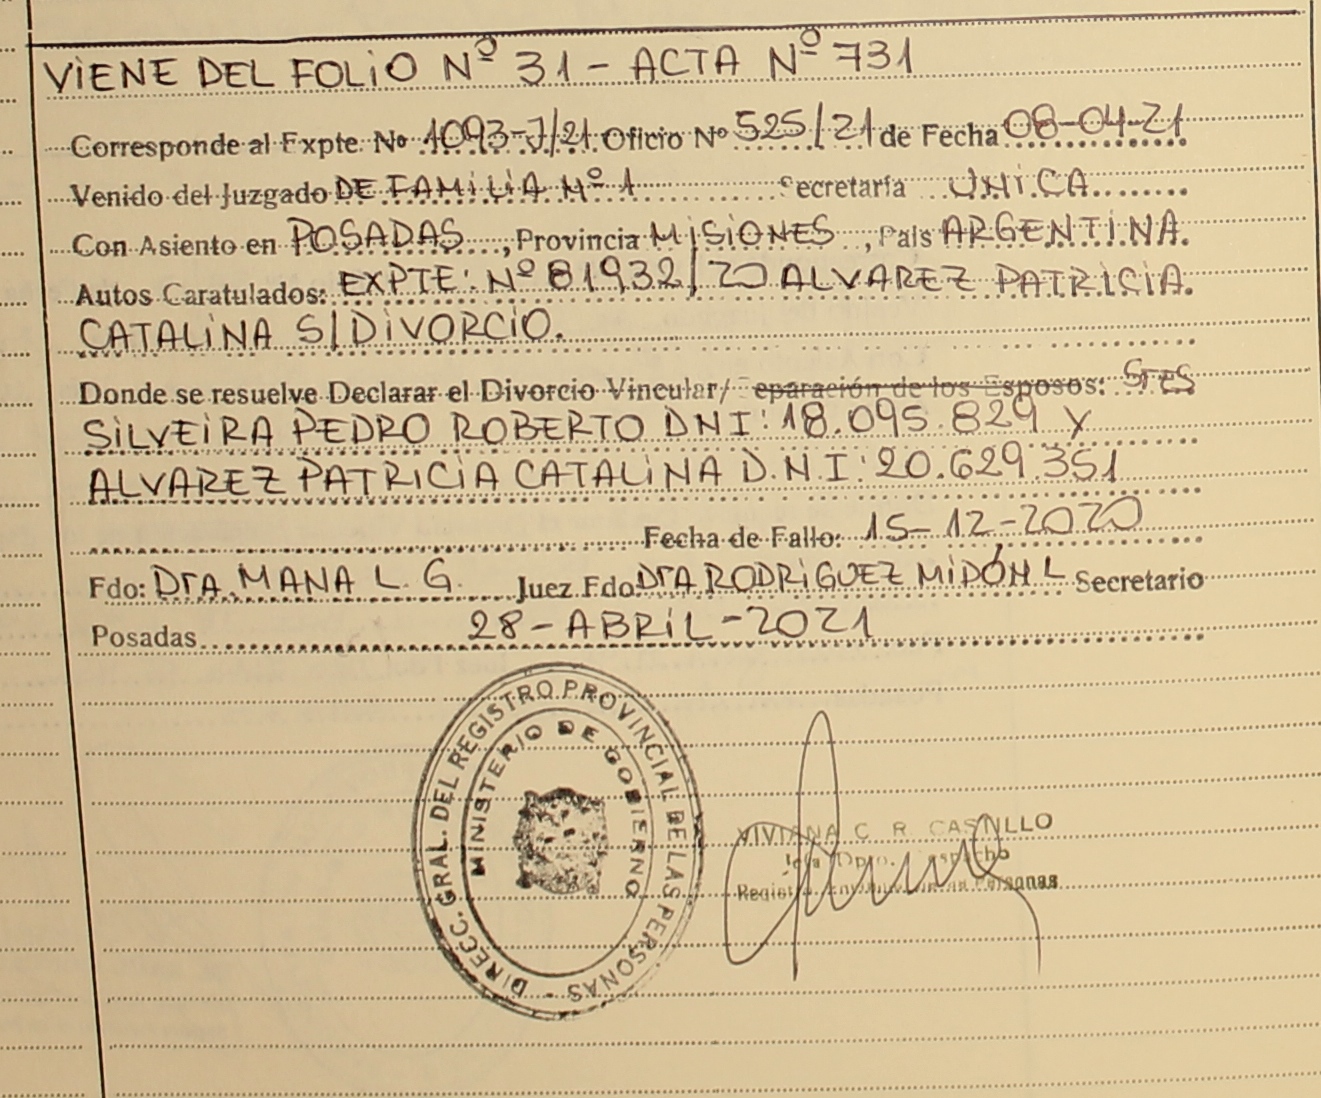 VIENE DEL FOLIO Nº 31 - ACTA Nº 731
Corresponde al Expte. Nº 1093-J/21 Oficio Nº 525/21 de Fecha 08-04-21
Venido del Juzgado DE FAMILIA Nº 1 Secretaría UNICA
Con Asiento en POSADAS, Provincia MISIONES, País ARGENTINA.
Autos Caratulados: EXPTE: Nº 81932/20 ALVAREZ PATRICIA
CATALINA S/DIVORCIO.
Donde se resuelve Declarar el Divorcio Vincular/ Separación de los Esposos: Sres
SILVEIRA PEDRO ROBERTO DNI: 18.095.829 Y
ALVAREZ PATRICIA CATALINA D.N.I: 20.629.351
Fecha de Fallo: 15-12-2020
Fdo: Dra. MANA L. G. Juez Fdo Dra RODRIGUEZ MIDÓN L Secretario
Posadas 28-ABRIL-2021
DIRECC. GRAL. DEL REGISTRO PROVINCIAL DE LAS PERSONAS -
MINISTERIO DE GOBIERNO
VIVIANA C. R. CASTILLO
Dpto. Despacho
Personas